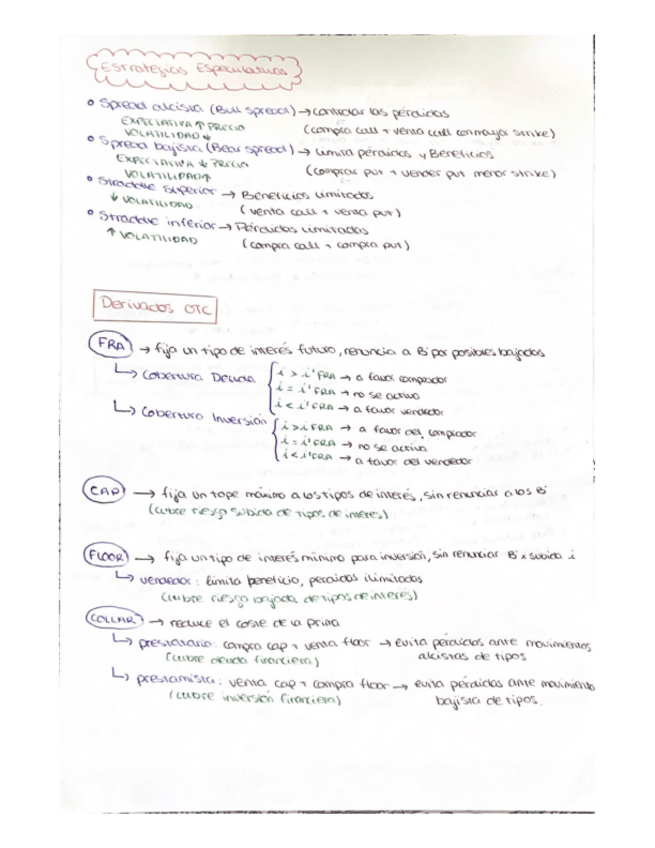 Estrategias Especulativas
• Spread alcista (Bull spread) → controlar las pérdidas
EXPECTATIVA ↑ PRECIO
VOLATILIDAD ↓
(compra call + venta call con mayor strike)
• Spread bajista (Bear spread) → Limita pérdidas y Beneficios
EXPECTATIVA ↓ PRECIO
VOLATILIDAD ↑
(comprar put + vender put menor strike)
• Straddle superior → Beneficios limitados
↓ VOLATILIDAD
(venta call + venta put)
• Straddle inferior → Pérdidas limitadas
↑ VOLATILIDAD
(compra call + compra put)
Derivados OTC
FRA → fija un tipo de interés futuro, renuncia a Bº por posibles bajadas
↳ Cobertura Deuda
i > i'FRA → a favor comprador
i = i'FRA → no se activa
i < i'FRA → a favor vendedor
↳ Cobertura Inversión
i > iFRA → a favor del comprador
i = i'FRA → no se activa
i < i'FRA → a favor del vendedor
CAP → fija un tope máximo a los tipos de interés, sin renunciar a los Bº
(cubre riesgo subida de tipos de interés)
FLOOR → fija un tipo de interés mínimo para inversión, sin renunciar Bº x subida i
↳ vendedor: limita beneficio, perdidas ilimitadas
(cubre riesgo bajada de tipos de interés)
COLLAR → reduce el coste de la prima
↳ prestatario: compra cap + venta floor → evita pérdidas ante movimientos
(cubre deuda financiera) alcistas de tipos
↳ prestamista: venta cap + compra floor → evita pérdidas ante movimiento
(cubre inversión financiera) bajista de tipos.